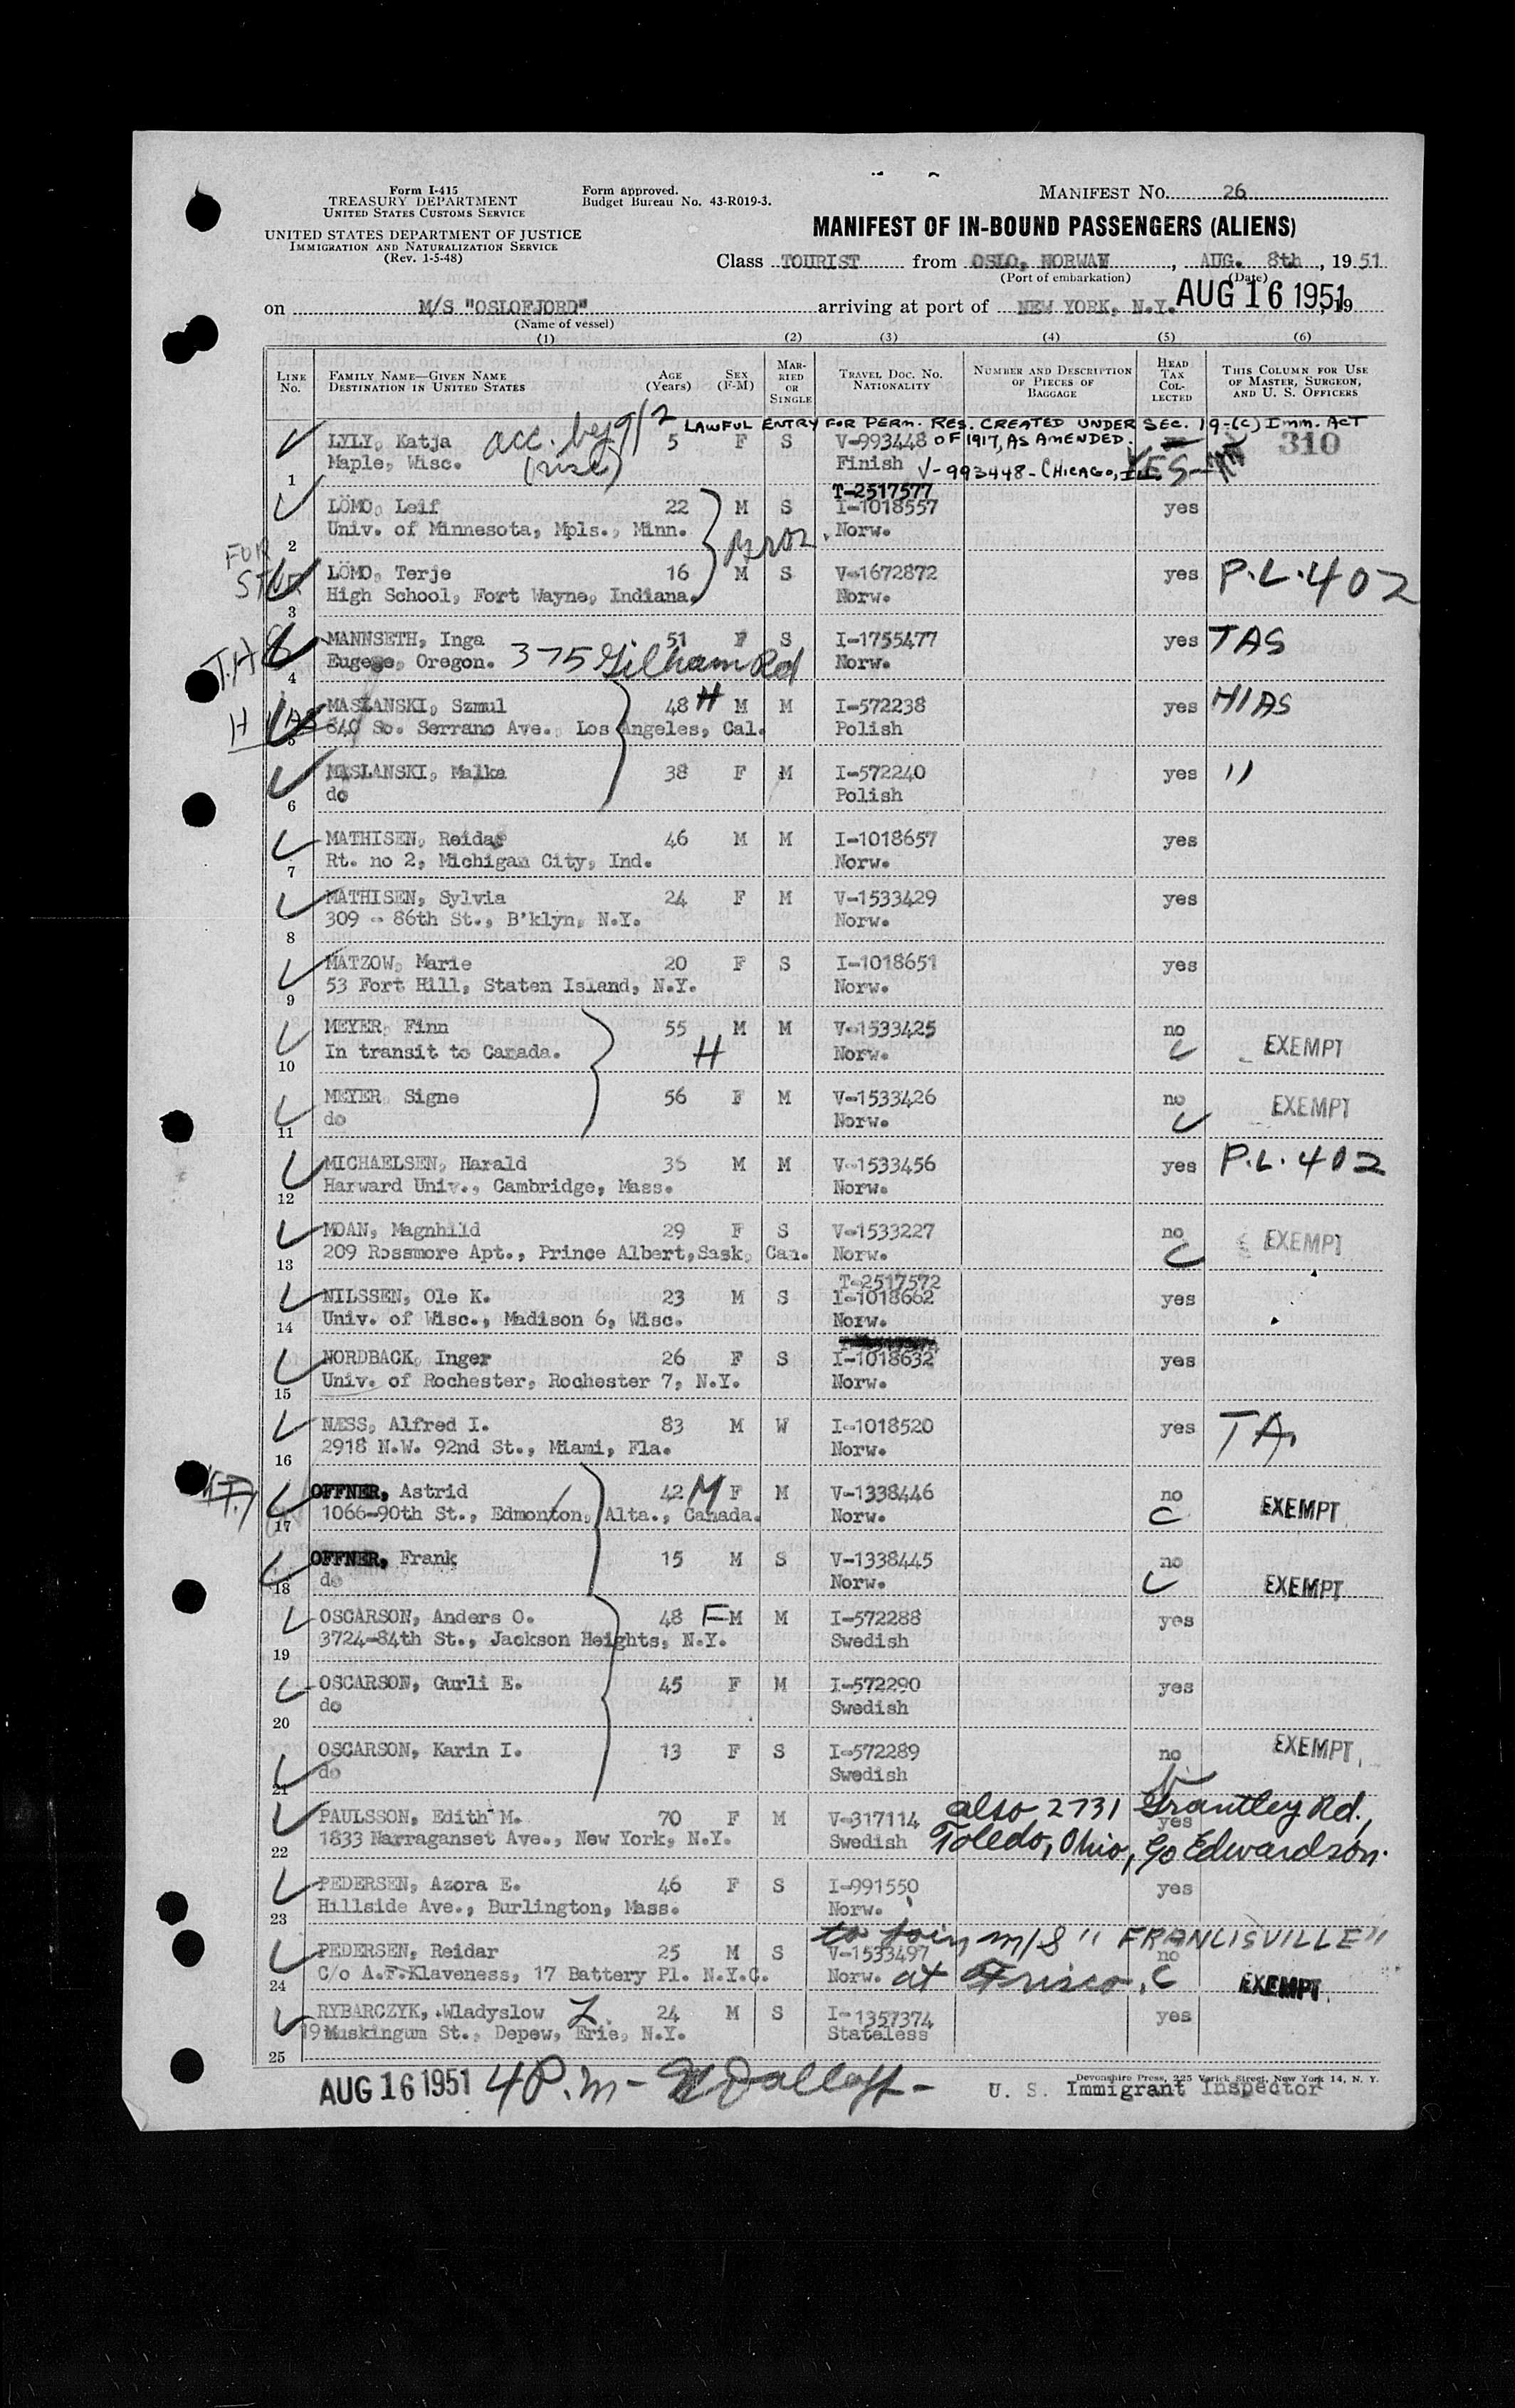 Form I-415
TREASURY DEPARTMENT
UNITED STATES CUSTOMS SERVICE
UNITED STATES DEPARTMENT OF JUSTICE
IMMIGRATION AND NATURALIZATION SERVICE
(Rev. 1-5-48)
Form approved.
Budget Bureau No. 43-R019-3.
MANIFEST NO. 26
MANIFEST OF IN-BOUND PASSENGERS (ALIENS)
Class TOURIST from OSLO, NORWAY, AUG. 8th, 1951
(Port of embarkation) (Date)
on M/S "OSLOFJORD" arriving at port of NEW YORK, N.Y. AUG 16 1951, 19
(Name of vessel)
(1) (2) (3) (4) (5) (6)
LINE NO. FAMILY NAME—GIVEN NAME DESTINATION IN UNITED STATES AGE (YEARS) SEX (F-M) MARRIED OR SINGLE TRAVEL DOC. NO. NATIONALITY NUMBER AND DESCRIPTION OF PIECES OF BAGGAGE HEAD TAX COLLECTED THIS COLUMN FOR USE OF MASTER, SURGEON, AND U. S. OFFICERS
LAWFUL ENTRY FOR PERM. RES. CREATED UNDER SEC. 19-(C) IMM. ACT
LYLY, Katja acc. by 9/2 5 F S V-993448 OF 1917, AS AMENDED. 310
Maple, Wisc. Finish V-993448-CHICAGO, ILL. YES
1
T-2517577
LÖMO, Leif 22 M S I-1018557 yes
Univ. of Minnesota, Mpls., Minn. Norw.
2
FOR STUD. LÖMO, Terje 16 M S V-1672872 yes P.L. 402
High School, Fort Wayne, Indiana. Norw.
3
MANNSETH, Inga 51 F S I-1755477 yes TAS
Eugene, Oregon. 375 Gilham Rd Norw.
4
MASLANSKI, Szmul 48 H M M I-572238 yes HIAS
HIAS 840 So. Serrano Ave., Los Angeles, Cal. Polish
5
MASLANSKI, Malka 38 F M I-572240 yes "
do Polish
6
MATHISEN, Reidar 46 M M I-1018657 yes
Rt. no 2, Michigan City, Ind. Norw.
7
MATHISEN, Sylvia 24 F M V-1533429 yes
309 - 86th St., B'klyn, N.Y. Norw.
8
MATZOW, Marie 20 F S I-1018651 yes
53 Fort Hill, Staten Island, N.Y. Norw.
9
MEYER, Finn 55 M M V-1533425 no EXEMPT
In transit to Canada. H Norw.
10
MEYER, Signe 56 F M V-1533426 no EXEMPT
do Norw.
11
MICHAELSEN, Harald 36 M M V-1533456 yes P.L. 402
Harward Univ., Cambridge, Mass. Norw.
12
MOAN, Magnhild 29 F S V-1533227 no EXEMPT
209 Rossmore Apt., Prince Albert, Sask. Can. Norw. C
13
T-2517572
NILSSEN, Ole K. 23 M S I-1018662 yes
Univ. of Wisc., Madison 6, Wisc. Norw.
14
NORDBACK, Inger 26 F S I-1018632 yes
Univ. of Rochester, Rochester 7, N.Y. Norw.
15
NÆSS, Alfred I. 83 M W I-1018520 yes TA
2918 N.W. 92nd St., Miami, Fla. Norw.
16
OFFNER, Astrid 42 M F M V-1338446 no EXEMPT
1066-90th St., Edmonton, Alta., Canada. Norw. C
17
OFFNER, Frank 15 M S V-1338445 no EXEMPT
do Norw.
18
OSCARSON, Anders O. 48 F M M I-572288 yes
3724-84th St., Jackson Heights, N.Y. Swedish
19
OSCARSON, Gurli E. 45 F M I-572290 yes
do Swedish
20
OSCARSON, Karin I. 13 F S I-572289 no EXEMPT
do Swedish
21
PAULSSON, Edith M. 70 F M V-317114 also 2731 Grantley Rd., yes
1833 Narraganset Ave., New York, N.Y. Swedish Toledo, Ohio, c/o Edwardson.
22
PEDERSEN, Azora E. 46 F S I-991550 yes
Hillside Ave., Burlington, Mass. Norw.
23
to join M/S "FRANCISVILLE"
PEDERSEN, Reidar 25 M S V-1533497 no
C/o A.F.Klaveness, 17 Battery Pl. N.Y.C. Norw. at Frisco. C EXEMPT
24
RYBARCZYK, Wladyslow Z. 24 M S I-1357374 yes
19 Muskingum St., Depew, Erie, N.Y. Stateless
25
Devonshire Press, 225 Varick Street, New York 14, N. Y.
AUG 16 1951 4 P.m- U. S. Immigrant Inspector